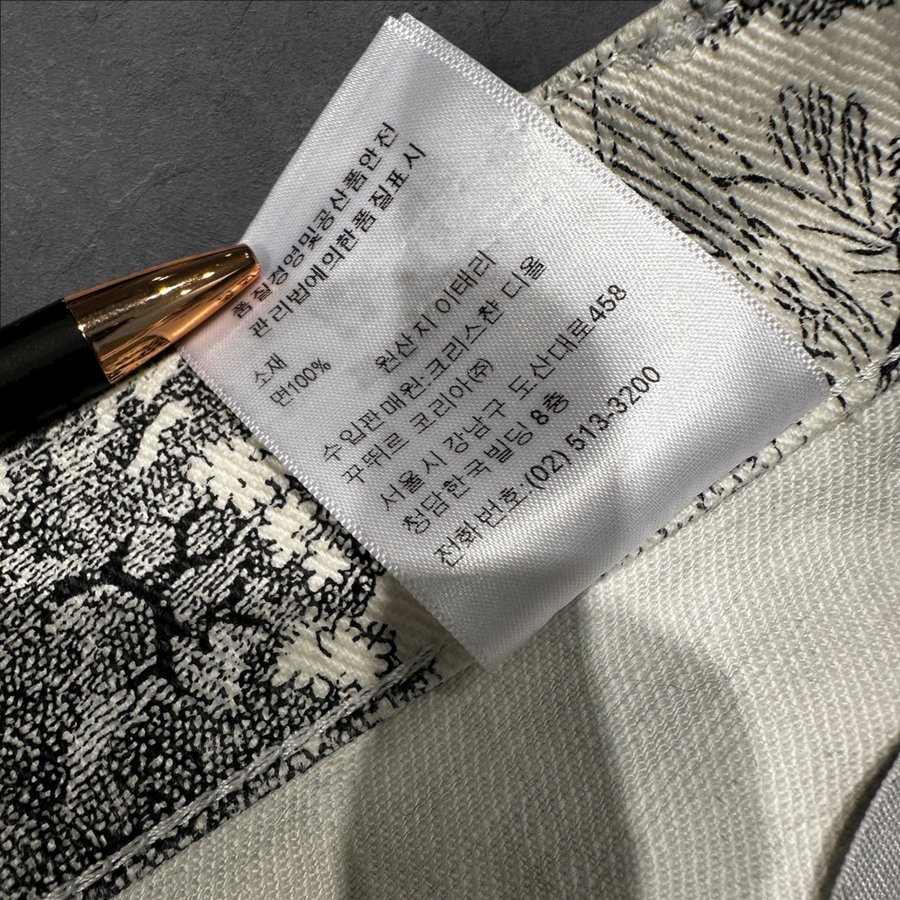 품질경영및공산품안전
관리법에의한품질표시
소재 원산지 이태리
면100%
수입판매원:크리스챤 디올
꾸뛰르 코리아㈜
서울시 강남구 도산대로458
청담한국빌딩 8층
전화번호:(02) 513-3200